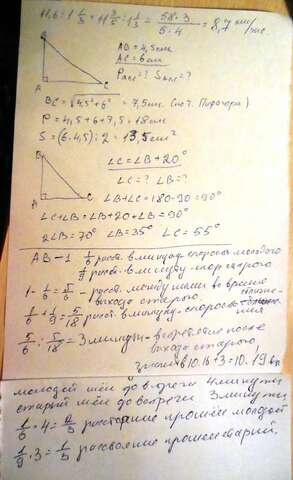 11,6 : 1 1/3 = 11 3/5 : 1 1/3 = 58·3/5·4 = 8,7 км/час.
B
AB = 4,5 см
AC = 6 см
P_ABC = ? S_ABC = ?
A
C
BC = √4,5² + 6² = 7,5 см (по т. Пифагора)
P = 4,5 + 6 + 7,5 = 18 см
S = (6·4,5) : 2 = 13,5 см²
B
∠C = ∠B + 20°
∠C = ? ∠B = ?
∠B + ∠C = 180 - 90 = 90°
A
C
∠C + ∠B = ∠B + 20 + ∠B = 90°
2∠B = 70° ∠B = 35° ∠C = 55°
AB - 1 1/6 расст. в минуту скорость молодого
1/9 расст. в минуту - скор старого
1 - 1/6 = 5/6 - расст. между ними во время
выхода старого.
1/6 + 1/9 = 5/18 расст. в минуту - скорость
5/6 : 5/18 = 3 минуты - встретятся после
выхода старого
10.16 + 3 = 10.19
молодой шёл до встречи 4 минуты
старый шёл до встречи 3 минуты
1/6 · 4 = 2/3 расстояние прошёл молодой
1/9 · 3 = 1/3 расстояние прошёл старый.